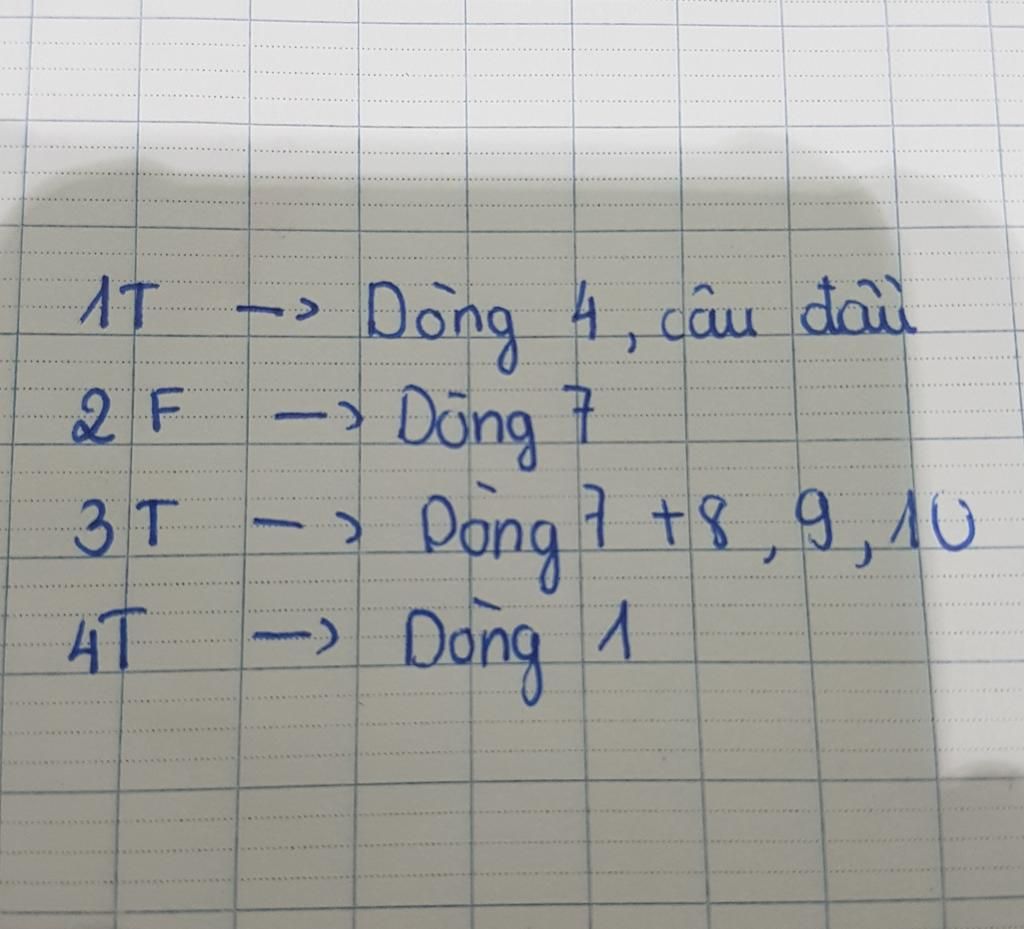 1T -> Dòng 4, câu đầu
2F -> Dòng 7
3T -> Dòng 7 + 8, 9, 10
4T -> Dòng 1